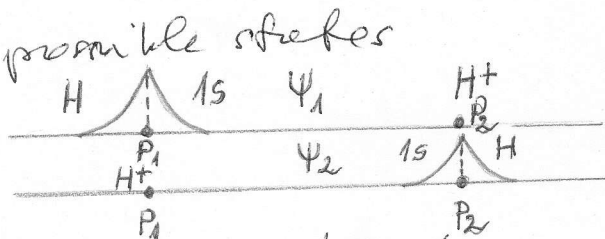 possible states
H 1S Ψ1 H+
P1 P2
H+ Ψ2 1S H
P1 P2